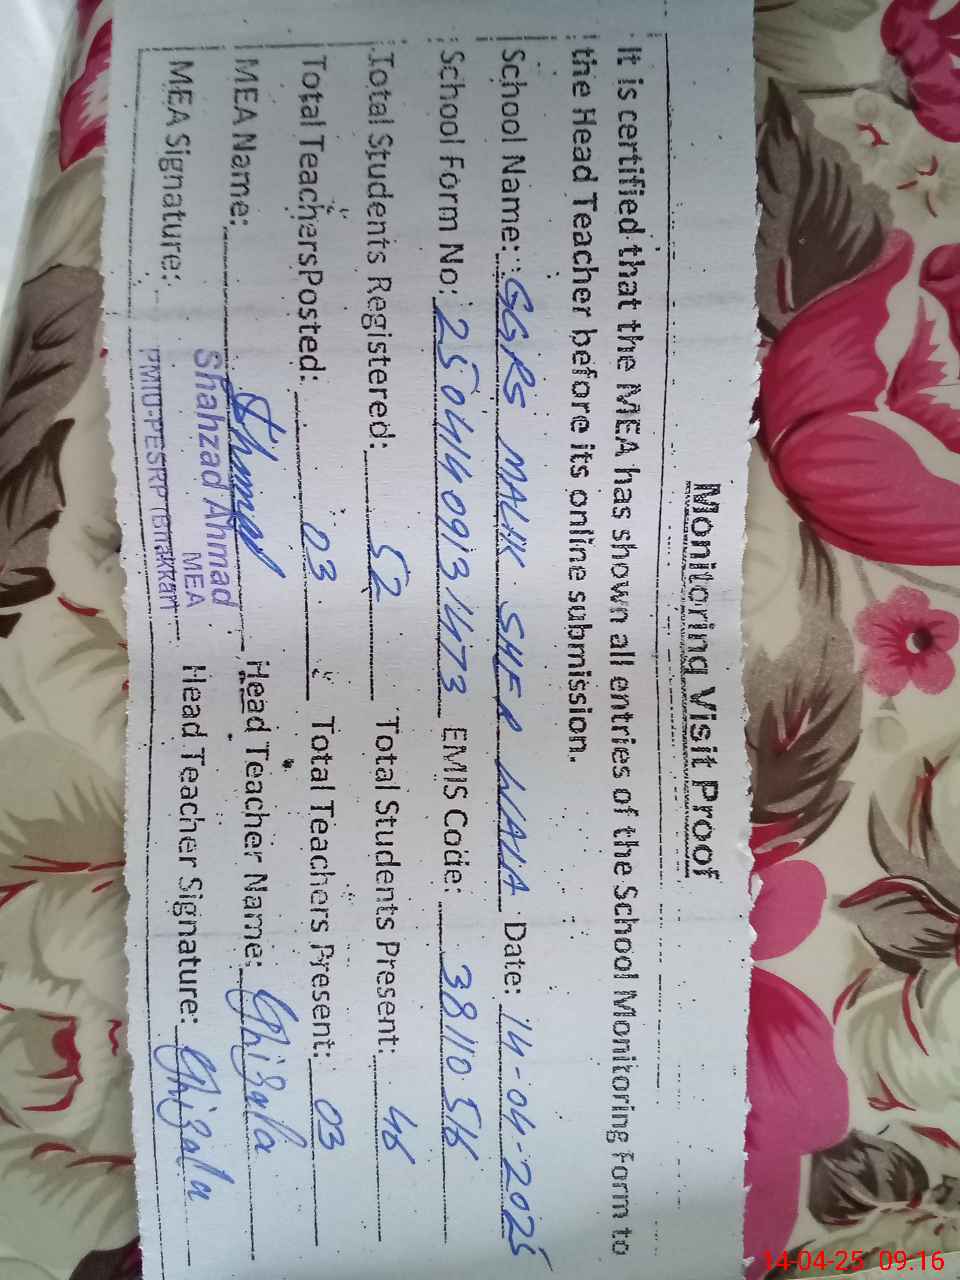 Monitoring Visit Proof
It is certified that the MEA has shown all entries of the School Monitoring Form to
the Head Teacher before its online submission.
School Name: GGPS MALIK SHER WALA Date: 14-04-2025
School Form No: 25041409131473 EMIS Code: 38110516
Total Students Registered: 52 Total Students Present: 46
Total Teachers Posted: 03 Total Teachers Present: 03
MEA Name: Head Teacher Name: Ghizala
MEA Signature: Head Teacher Signature: Ghizala
Shahzad Ahmad
MEA
PMIU-PESRP (Bhakkar)
14-04-25 09.16